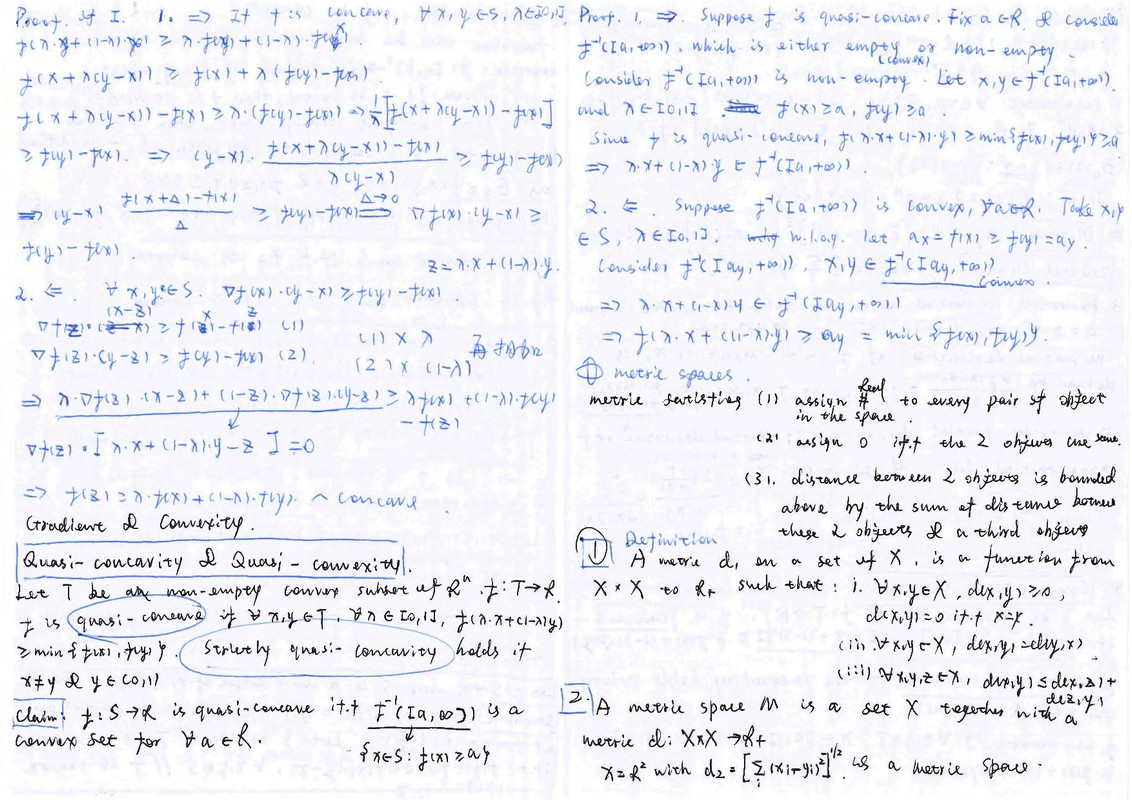 Proof of I. 1. ⇒ If f is concave, ∀ x, y ∈ S, λ ∈ [0,1]
f(λ·y + (1-λ)x) ≥ λ·f(y) + (1-λ)·f(x)
f(x + λ(y-x)) ≥ f(x) + λ(f(y) - f(x))
f(x + λ(y-x)) - f(x) ≥ λ·(f(y) - f(x)) ⇒ 1/λ [f(x + λ(y-x)) - f(x)]
≥ f(y) - f(x). ⇒ (y-x)· f(x + λ(y-x)) - f(x) / λ(y-x) ≥ f(y) - f(x)
⇒ (y-x) f(x+Δ) - f(x) / Δ ≥ f(y) - f(x) ⇒ Δ→0 ∇f(x)·(y-x) ≥
f(y) - f(x).
z = λ·x + (1-λ)·y.
2. ⇐ ∀ x, y ∈ S. ∇f(x)·(y-x) ≥ f(y) - f(x)
∇f(z)·(x-z) ≥ f(x) - f(z) (1)
∇f(z)·(y-z) ≥ f(y) - f(z) (2).
(1) × λ
(2) × (1-λ) 再相加
⇒ λ·∇f(z)·(x-z) + (1-z)·∇f(z)·(y-z) ≥ λf(x) + (1-λ)·f(y) - f(z)
∇f(z)·[λ·x + (1-λ)·y - z] = 0
⇒ f(z) ≥ λ·f(x) + (1-λ)·f(y). ~ concave
Gradient & Convexity.
Quasi-concavity & Quasi-convexity.
Let T be non-empty convex subset of R^n. f: T→R.
f is quasi-concave if ∀ x, y ∈ T, ∀ λ ∈ [0,1], f(λ·x + (1-λ)y)
≥ min{f(x), f(y)}. Strictly quasi-concavity holds if
x ≠ y & y ∈ (0,1)
Claim: f: S→R is quasi-concave iff f⁻¹([a,∞]) is a
convex set for ∀ a ∈ R.
{x∈S: f(x) ≥ a}
Proof. 1. ⇒. Suppose f is quasi-concave. Fix a ∈ R & consider
f⁻¹([a,+∞)), which is either empty or non-empty
(convex)
Consider f⁻¹([a,+∞)) is non-empty. Let x, y ∈ f⁻¹([a,+∞))
and λ ∈ [0,1]. f(x) ≥ a, f(y) ≥ a.
Since f is quasi-concave, f(λ·x + (1-λ)·y) ≥ min{f(x), f(y)} ≥ a
⇒ λ·x + (1-λ)·y ∈ f⁻¹([a,+∞)).
2. ⇐. Suppose f⁻¹([a,+∞)) is convex, ∀a∈R. Take x, y
∈ S, λ ∈ [0,1]. w.l.o.g. let ax = f(x) ≥ f(y) = ay.
Consider f⁻¹([ay,+∞)), x, y ∈ f⁻¹([ay,+∞))
convex.
⇒ λ·x + (1-λ)y ∈ f⁻¹([ay,+∞))
⇒ f(λ·x + (1-λ)y) ≥ ay = min{f(x), f(y)}.
metric spaces.
metric satisfing (1) assign Real # to every pair of object
in the space
(2) assign 0 iff the 2 objects are same.
(3). distance between 2 objects is bounded
above by the sum of distance between
these 2 objects & a third objects
① Definition
A metric d, on a set of X, is a function from
X × X to R+ such that: i. ∀x,y∈X, d(x,y) ≥ 0,
d(x,y) = 0 iff x = y.
(ii) ∀x,y∈X, d(x,y) = d(y,x)
(iii) ∀x,y,z∈X, d(x,y) ≤ d(x,z) +
d(z,y)
2. A metric space M is a set X together with a
metric d: X×X → R+
X = R² with d₂ = [Σi (xi - yi)²]^1/2. is a metric space.